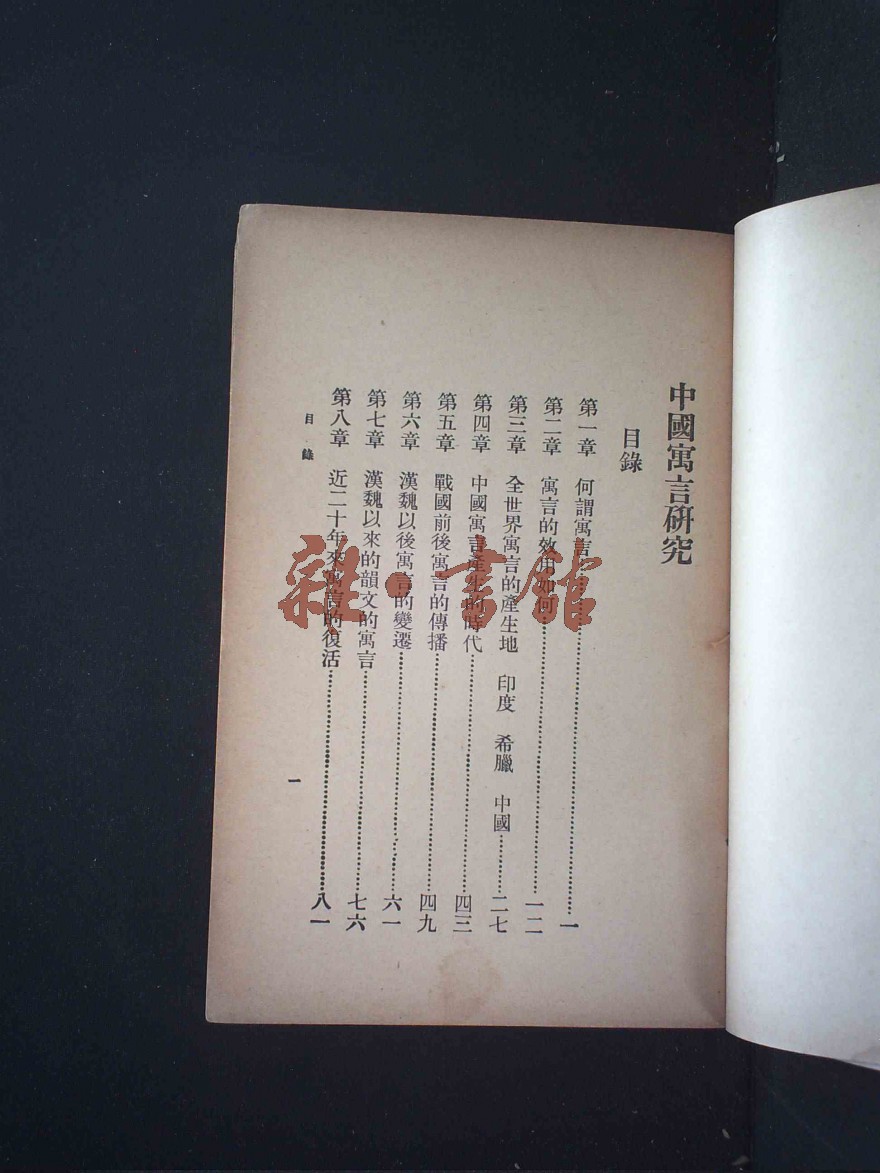 中國寓言研究
目錄
第一章 何謂寓言……一
第二章 寓言的效用如何……一二
第三章 全世界寓言的產生地 印度 希臘 中國……二七
第四章 中國寓言產生的時代……四三
第五章 戰國前後寓言的傳播……四九
第六章 漢魏以後寓言的變遷……六一
第七章 漢魏以來的韻文的寓言……七六
第八章 近二十年來寓言的復活……八一
目錄
一
雜·書館